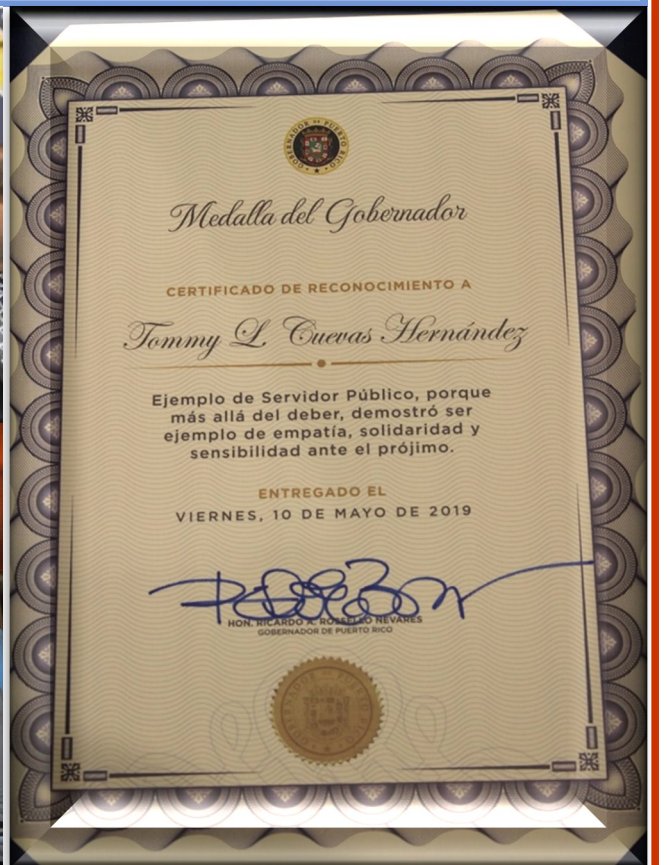 GOBERNADOR DE PUERTO RICO
Medalla del Gobernador
CERTIFICADO DE RECONOCIMIENTO A
Tommy L. Cuevas Hernández
Ejemplo de Servidor Público, porque
más allá del deber, demostró ser
ejemplo de empatía, solidaridad y
sensibilidad ante el prójimo.
ENTREGADO EL
VIERNES, 10 DE MAYO DE 2019
HON. RICARDO A. ROSSELLÓ NEVARES
GOBERNADOR DE PUERTO RICO
GOBERNADOR DE PUERTO RICO